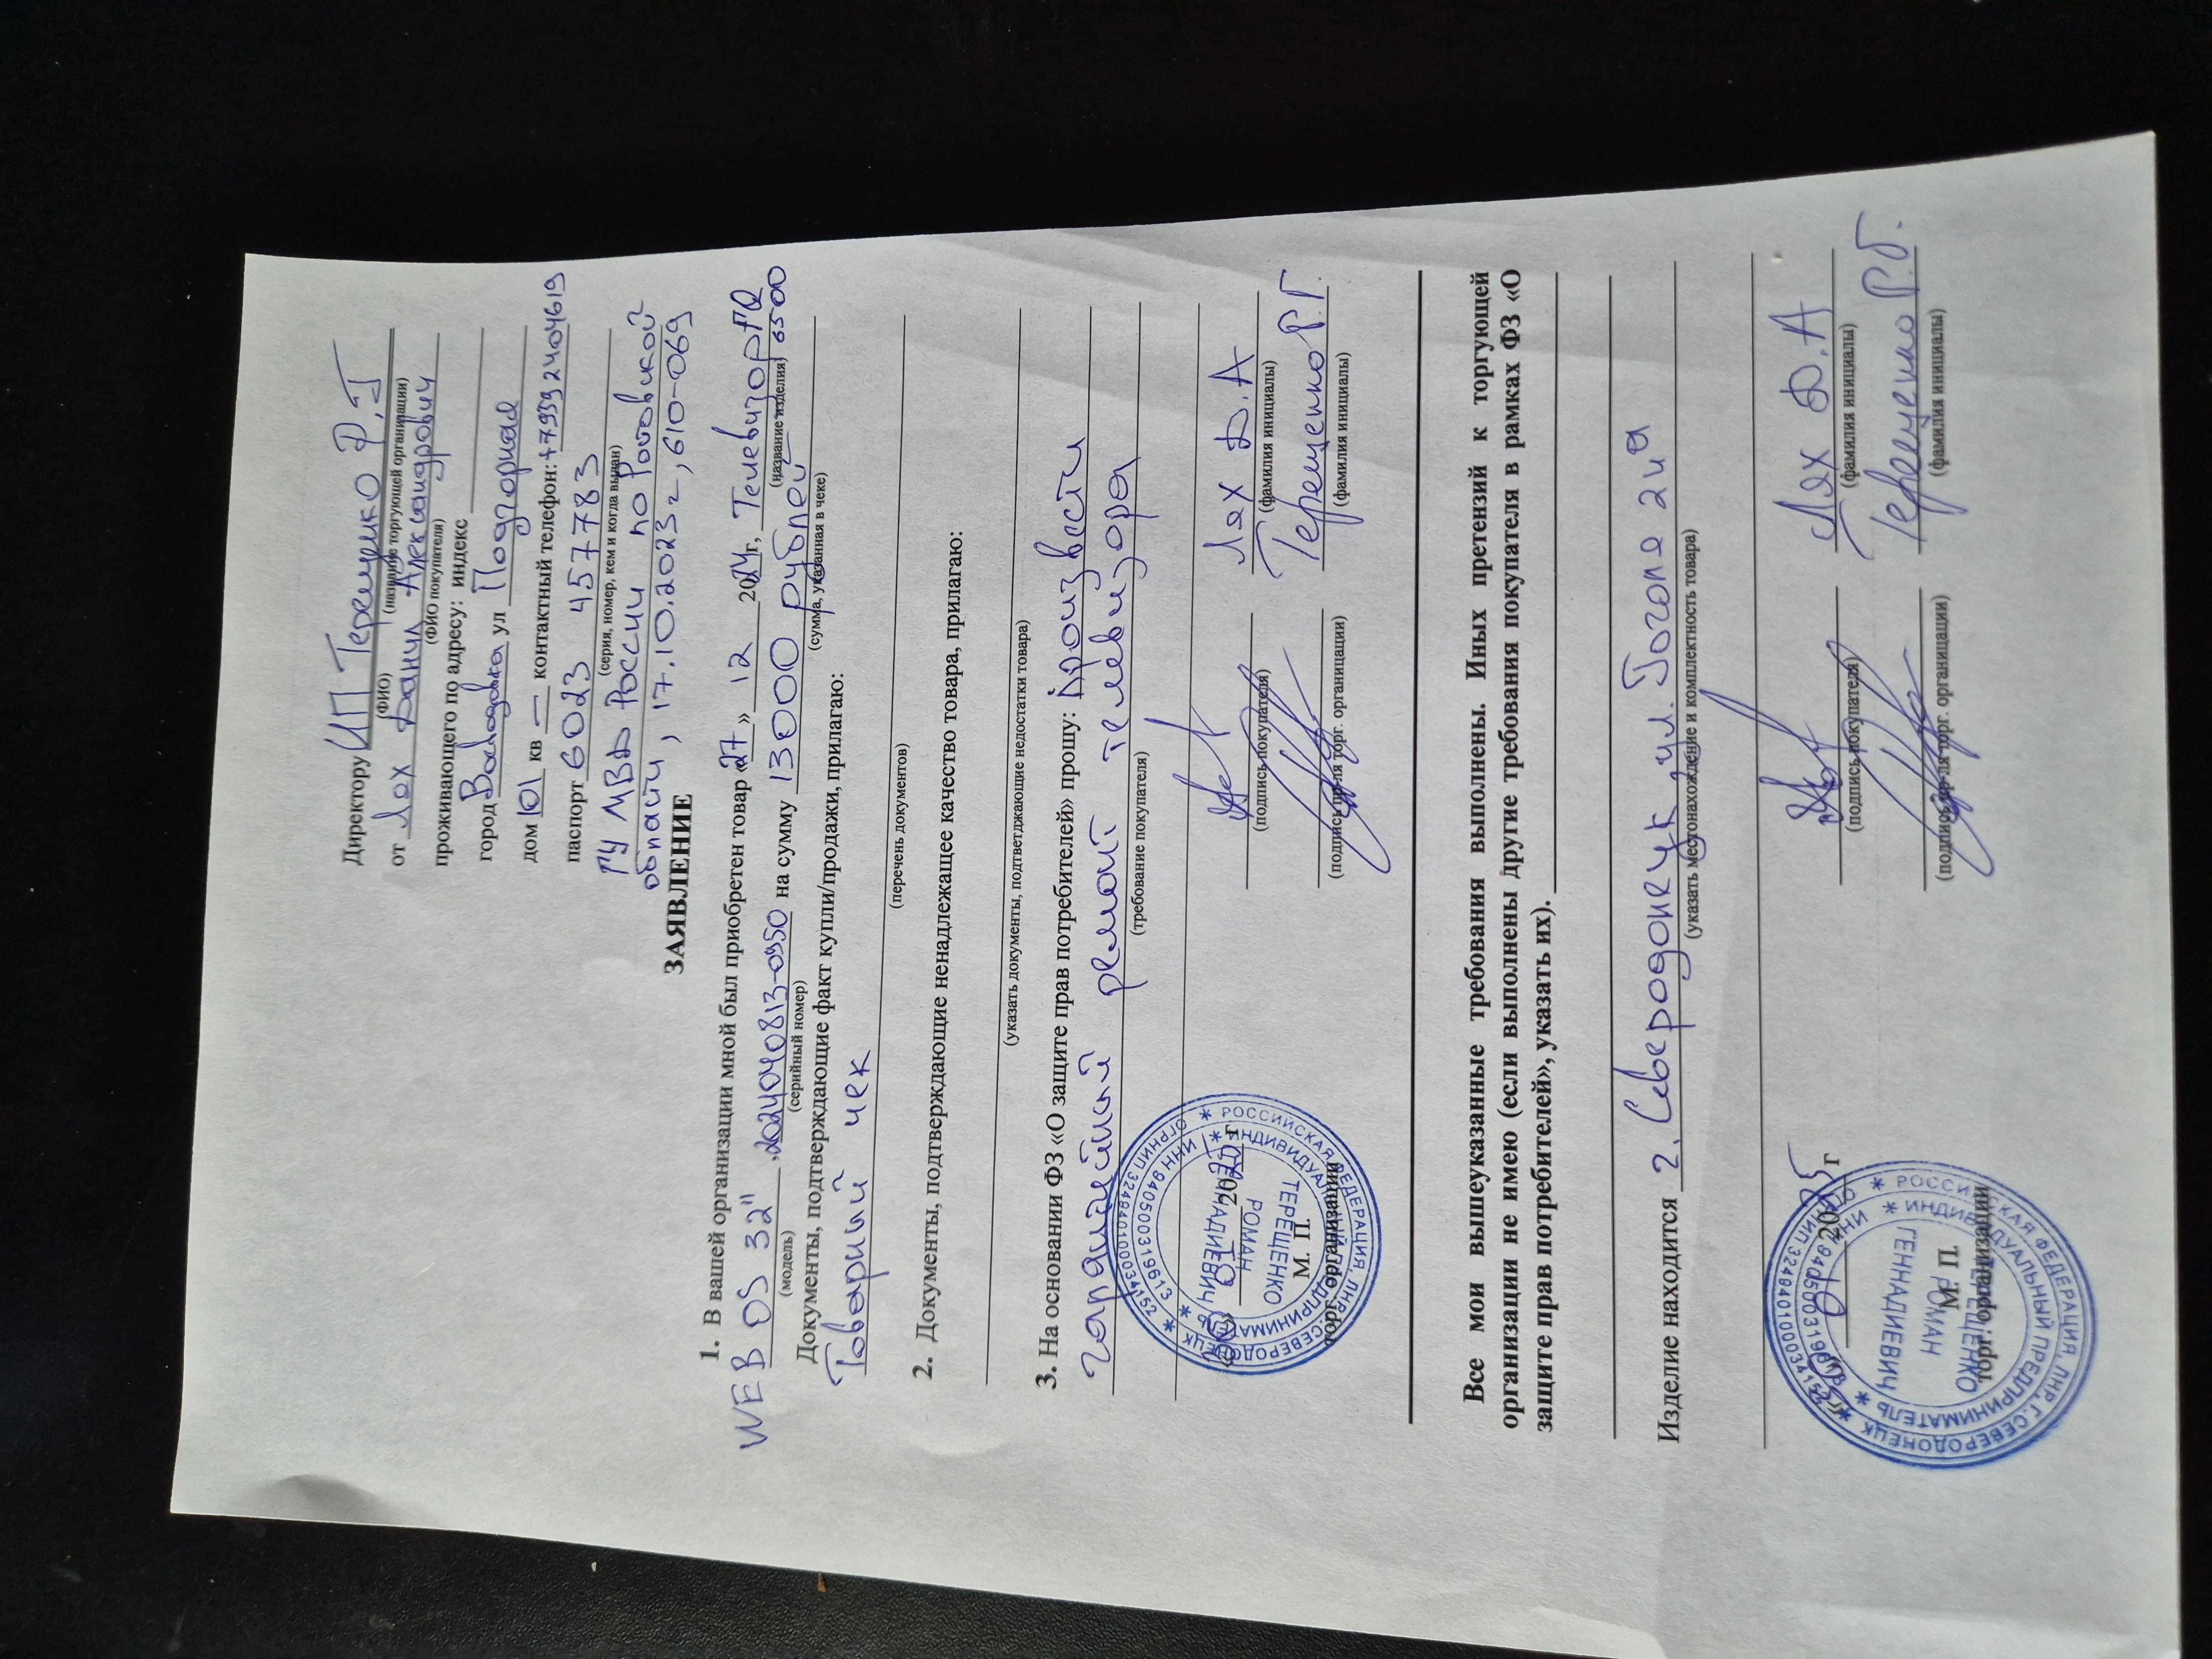 Директору ИП Терещенко Р.Г
(ФИО) (название торгующей организации)
от Лях Данил Александрович
(ФИО покупателя)
проживающего по адресу: индекс
город ул Подгорная
дом 101 кв — контактный телефон: +79592404619
паспорт 6023 457783
(серия, номер, кем и когда выдан)
ГУ МВД России по Ростовской
области, 17.10.2023г, 610-069
ЗАЯВЛЕНИЕ
1. В вашей организации мной был приобретен товар «27» 12 2024г, Телевизор
(название изделия) 6500
WEB OS 32", 2024040813-0950 на сумму 13000 рублей
(модель) (серийный номер) (сумма, указанная в чеке)
Документы, подтверждающие факт купли/продажи, прилагаю:
Товарный чек
(перечень документов)
2. Документы, подтверждающие ненадлежащее качество товара, прилагаю:
(указать документы, подтветджающие недостатки товара)
3. На основании ФЗ «О защите прав потребителей» прошу: Произвести
гарантийный ремонт телевизора
(требование покупателя)
Лях Д.А
(подпись покупателя) (фамилия инициалы)
01 20 г
Терещенко Р.Г
(подпись пр-ля торг. организации) (фамилия инициалы)
М. П.
торг. организации
* РОССИЙСКАЯ ФЕДЕРАЦИЯ, ЛНР, Г.СЕВЕРОДОНЕЦК *
* ИНДИВИДУАЛЬНЫЙ ПРЕДПРИНИМАТЕЛЬ *
ОГРНИП 324940100034152
ИНН 940500319613
ТЕРЕЩЕНКО
РОМАН
ГЕННАДИЕВИЧ
Все мои вышеуказанные требования выполнены. Иных претензий к торгующей
организации не имею (если выполнены другие требования покупателя в рамках ФЗ «О
защите прав потребителей», указать их).
Изделие находится г. Северодонецк, ул. Гоголя 24а
(указать местонахождение и комплектность товара)
Лях Д.А
(подпись покупателя) (фамилия инициалы)
«30» 01 2025 г
Терещенко Р.Г.
(подпись пр-ля торг. организации) (фамилия инициалы)
М. П.
торг. организации
* РОССИЙСКАЯ ФЕДЕРАЦИЯ, ЛНР, Г.СЕВЕРОДОНЕЦК *
* ИНДИВИДУАЛЬНЫЙ ПРЕДПРИНИМАТЕЛЬ *
ОГРНИП 324940100034152
ИНН 940500319613
ТЕРЕЩЕНКО
РОМАН
ГЕННАДИЕВИЧ